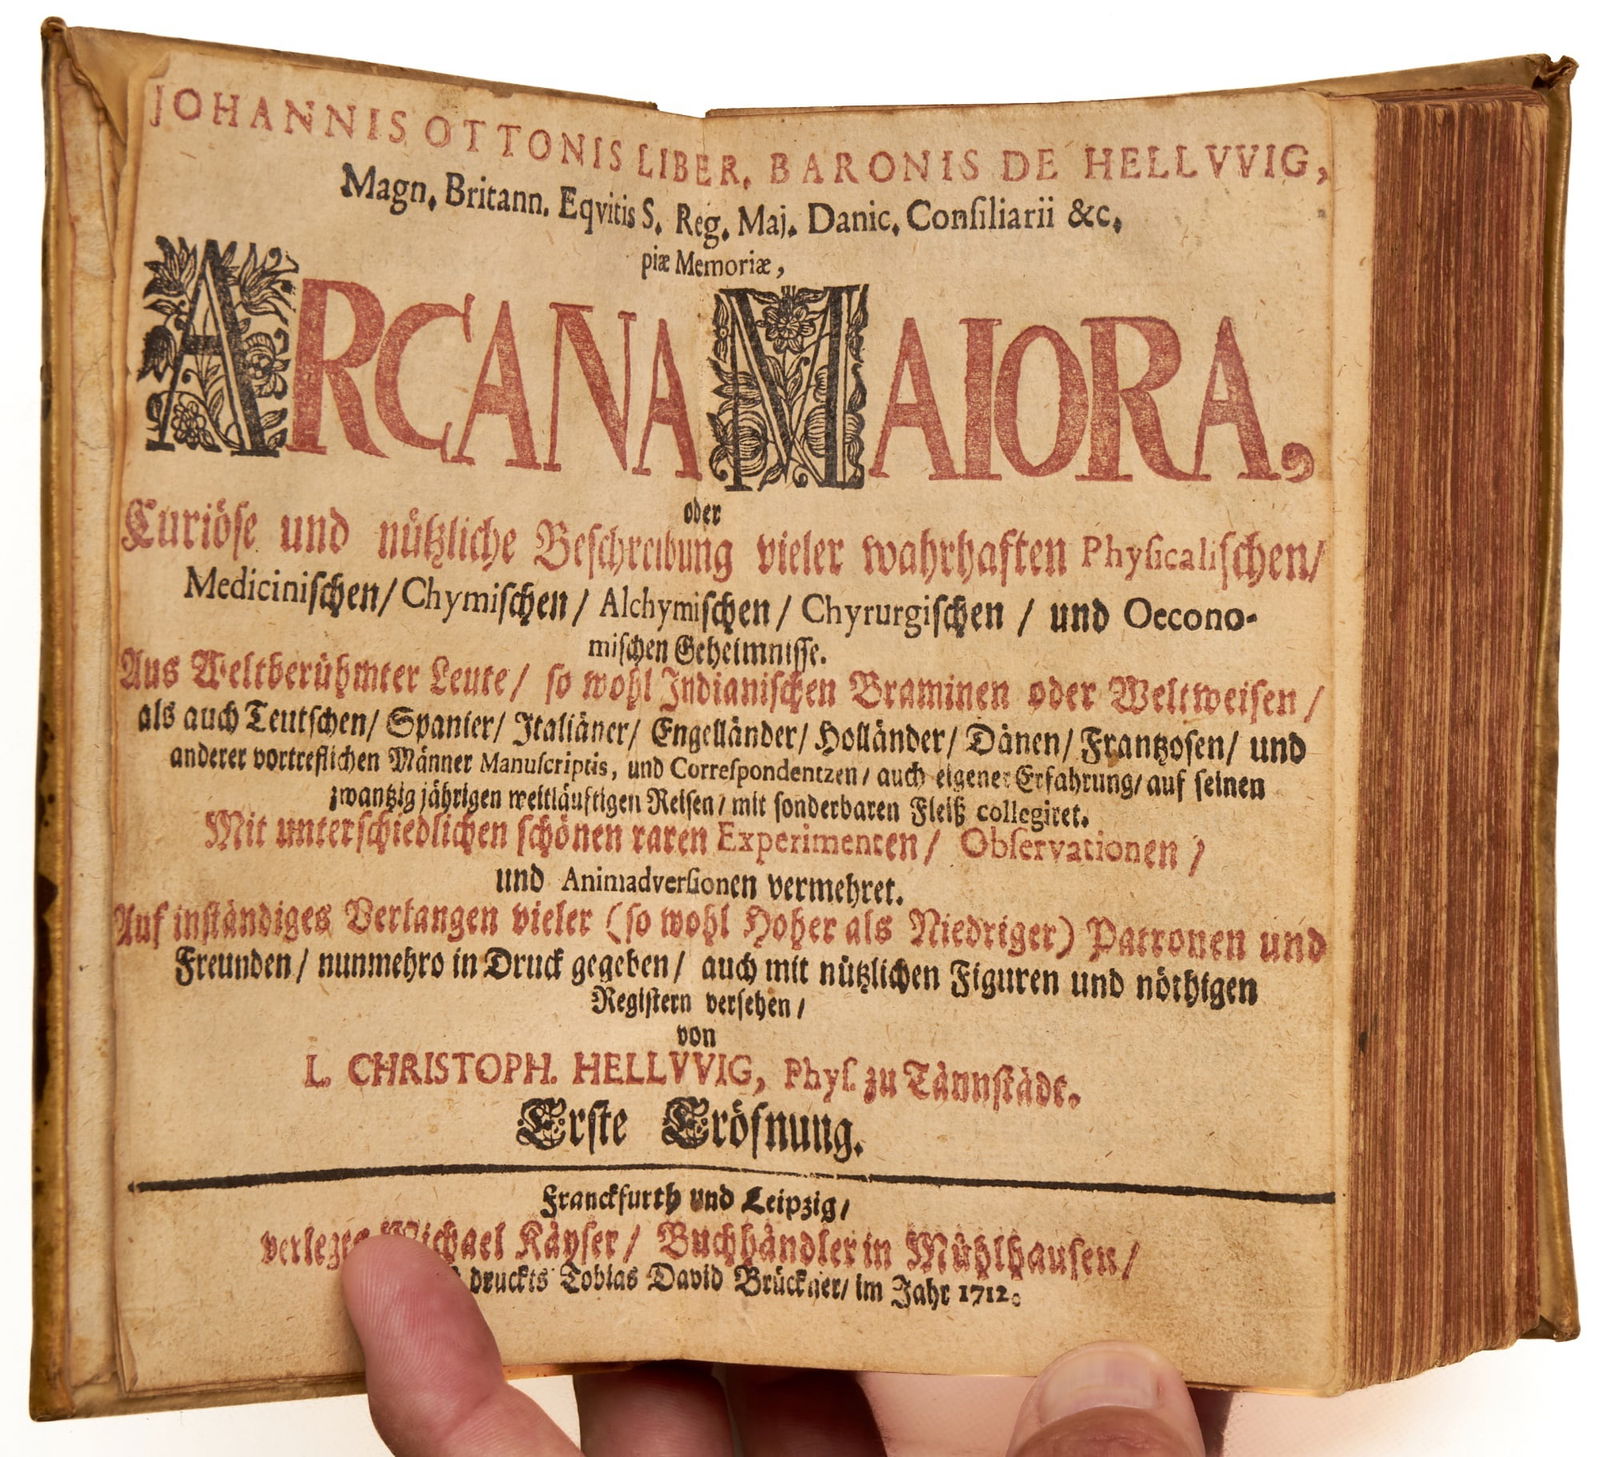 JOHANNIS OTTONIS LIBER. BARONIS DE HELLVVIG,
Magn. Britann. Eqvitis S. Reg. Maj. Danic. Conſiliarii &c.
piæ Memoriæ,
ARCANA MAIORA,
oder
Curiöſe und nützliche Beſchreibung vieler wahrhafften Phyſicaliſchen/
Mediciniſchen/ Chymiſchen/ Alchymiſchen/ Chyrurgiſchen / und Oecono-
miſchen Geheimniſſe.
Aus Weltberühmter Leute/ ſo wohl Indianiſchen Braminen oder Weltweiſen /
als auch Teutſchen/ Spanier/ Italiäner/ Engelländer/ Holländer/ Dänen/ Frantzoſen/ und
anderer vortreflichen Männer Manuſcriptis, und Correſpondentzen/ auch eigener Erfahrung/ auf ſeinen
zwantzig jährigen weitläuftigen Reiſen/ mit ſonderbaren Fleiß collegiret.
Mit unterſchiedlichen ſchönen raren Experimenten/ Obſervationen /
und Animadverſionen vermehret.
Auf inſtändiges Verlangen vieler (ſo wohl Hoher als Niedriger) Patronen und
Freunden/ nunmehro in Druck gegeben/ auch mit nützlichen Figuren und nöthigen
Regiſtern verſehen/
von
L. CHRISTOPH. HELLVVIG, Phyſ. zu Tännſtädt.
Erſte Eröfnung.
Franckfurth und Leipzig/
verlegts Michael Käyſer/ Buchhändler in Mühlhauſen/
druckts Tobias David Brückner/ im Jahr 1712.